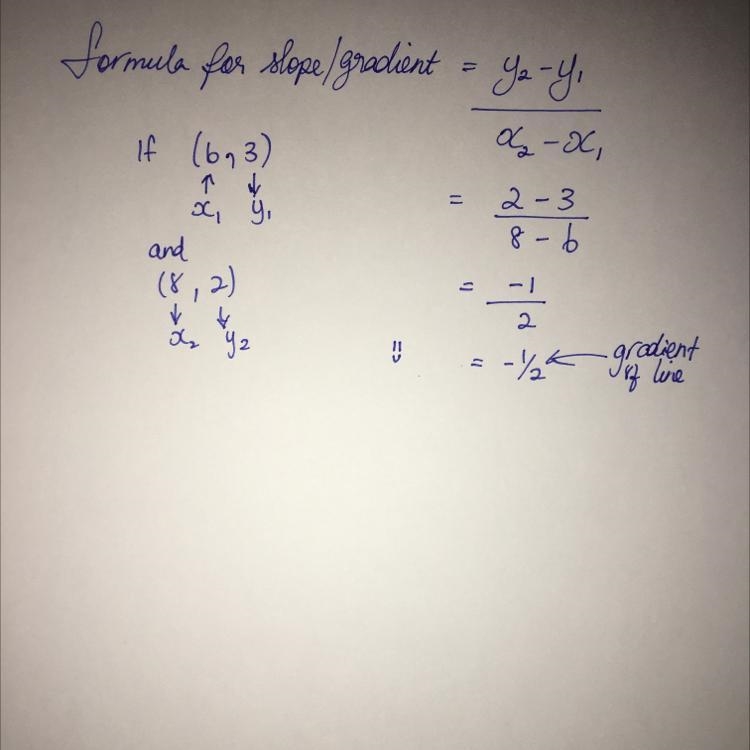 formula for slope/gradient = y₂ - y₁ / x₂ - x₁
If (6, 3)
↑ ↓
x₁ y₁
= 2 - 3 / 8 - 6
and
(8, 2)
↓ ↓
x₂ y₂
= -1 / 2
= -1/2 ← gradient
of line